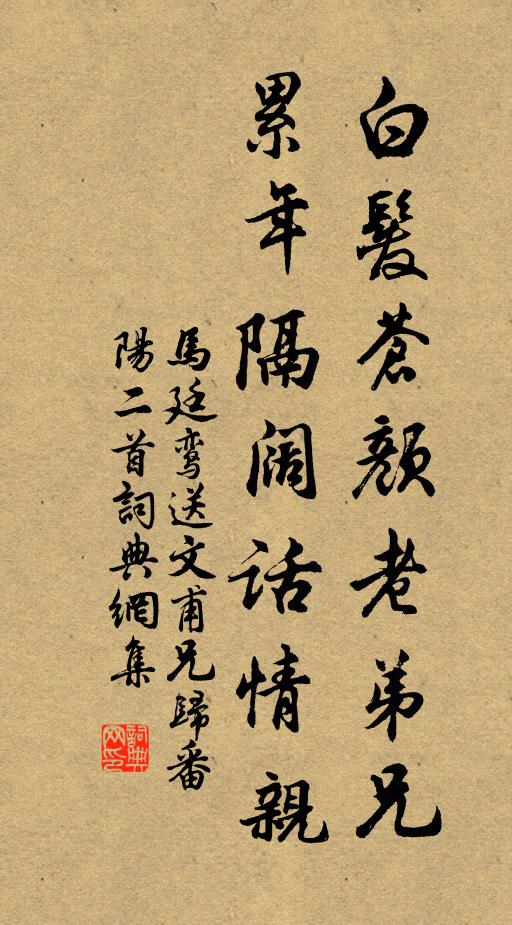 白髮蒼顏老弟兄
累年隔闊話情親
馬廷鸞送文甫兄歸番
陽二首詞典網集
詞典網印